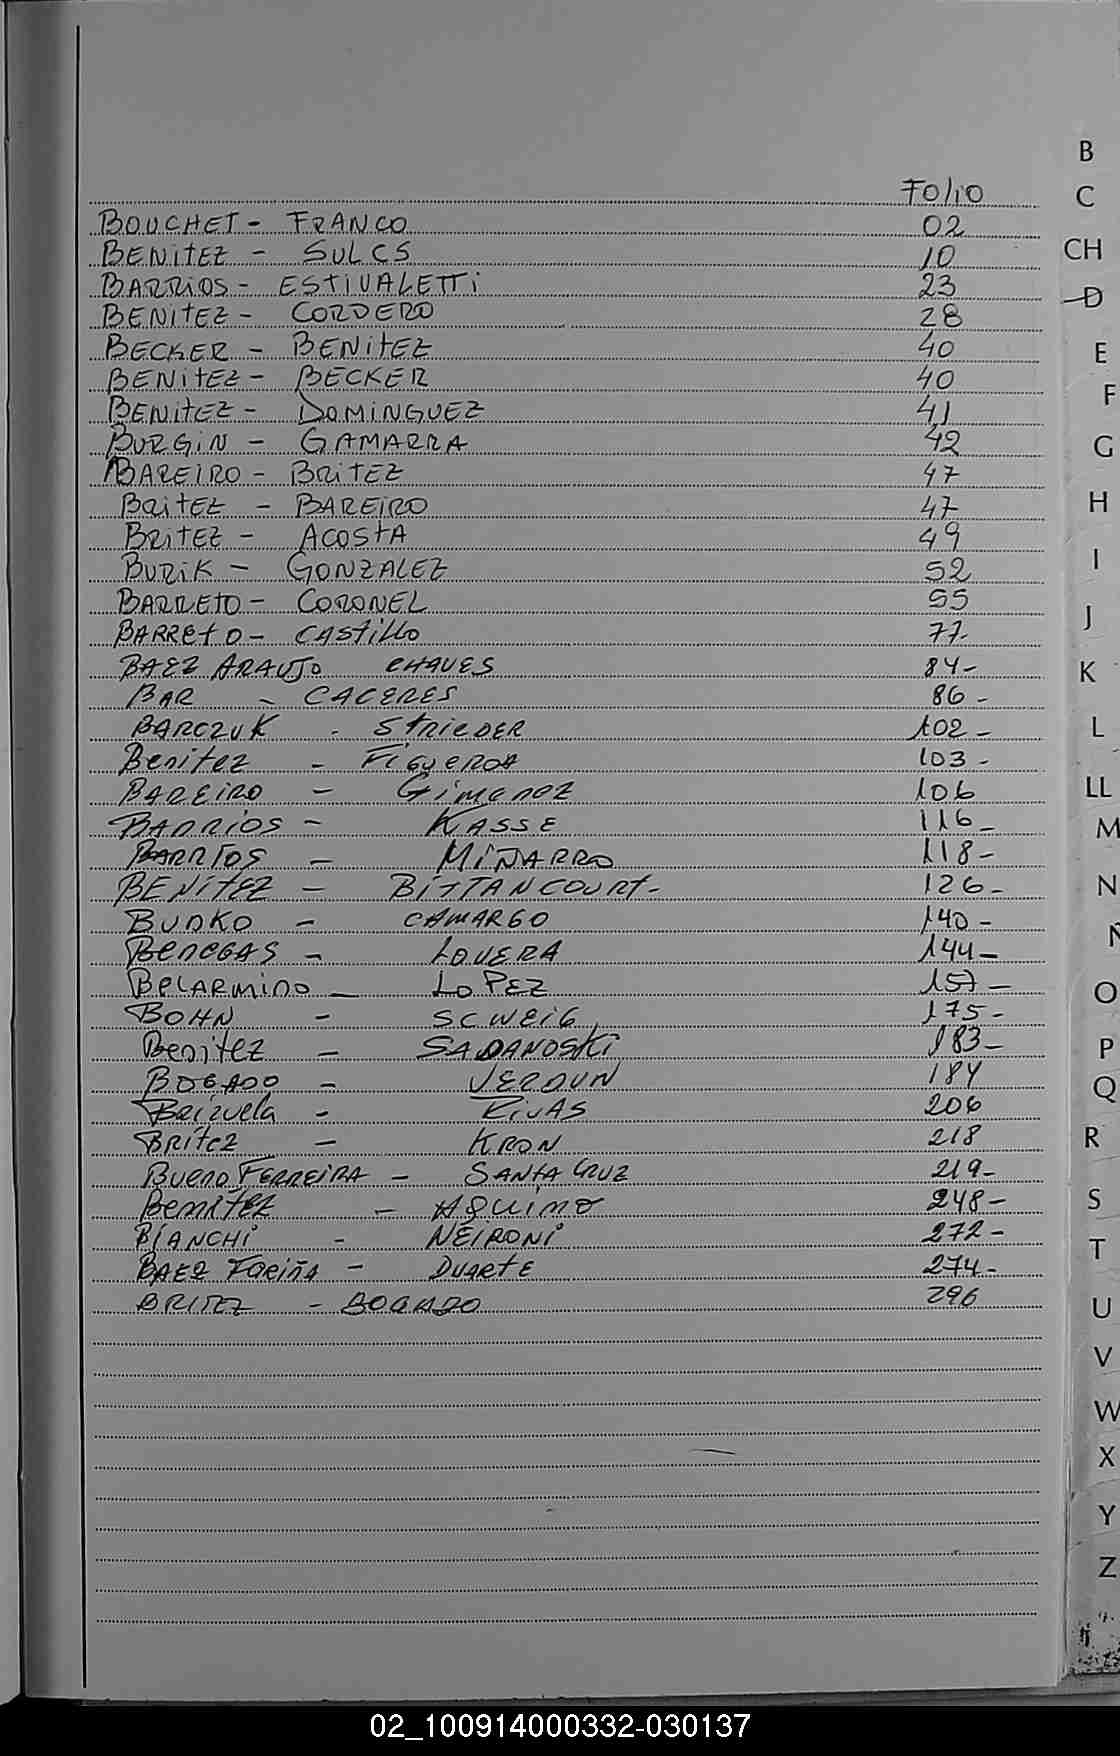 FOLIO
BOUCHET - FRANCO 02
BENITEZ - SULCS 10
BARRIOS - ESTIVALETTI 23
BENITEZ - CORDERO 28
BECKER - BENITEZ 40
BENITEZ - BECKER 40
BENITEZ - DOMINGUEZ 41
BURGIN - GAMARRA 42
BAREIRO - BRITEZ 47
BRITEZ - BAREIRO 47
BRITEZ - ACOSTA 49
BURIK - GONZALEZ 52
BARRETO - CORONEL 55
BARRETO - CASTILLO 77-
BAEZ ARAUJO CHAVES 84-
BAR - CACERES 86-
BARCZUK - STRIEDER 102-
Benitez - FIGUEROA 103-
BAREIRO - Gimenez 106
BARRIOS - KASSE 116-
BARRIOS - MIÑARRO 118-
BENITEZ - BITTANCOURT- 126-
BUDKO - CAMARGO 140-
BENEGAS - LOVERA 144-
BELARMINO - LOPEZ 157-
BOHN - SCWEIG 175-
Benitez - SADANOSKI 183-
BOGADO - VERDUN 184
Brizuela - RIVAS 206
BRITEZ - KRON 218
BUENO FERREIRA - SANTA CRUZ 219-
Benitez - AQUINO 248-
BIANCHI - NEIRONI 272-
BAEZ FARIÑA - DUARTE 274-
BRITEZ - BOGADO 296
B
C
CH
D
E
F
G
H
I
J
K
L
LL
M
N
Ñ
O
P
Q
R
S
T
U
V
W
X
Y
Z
02_100914000332-030137